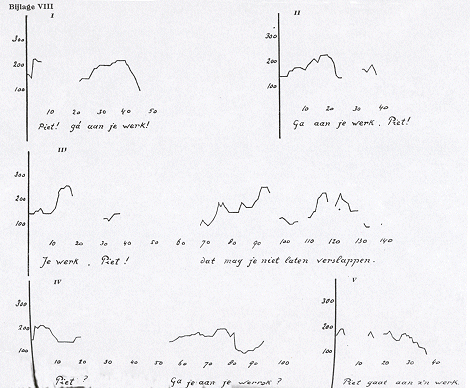 Bijlage VIII
I II
300 300
200 200
100 100
10 20 30 40 50 10 20 30 40
Piet! gá aan je werk! Ga aan je werk, Piet!
III
300
200
100
10 30 40 50 60 70 80 90 100 110 120 130 140
Je werk, Piet! dat mag je niet laten verslappen.
IV V
300 300
200 200
100 100
10 20 30 40 50 60 70 80 90 100 10 20 30 40
Piet? Ga je aan je werrək? Piet gaat aan z'n werk